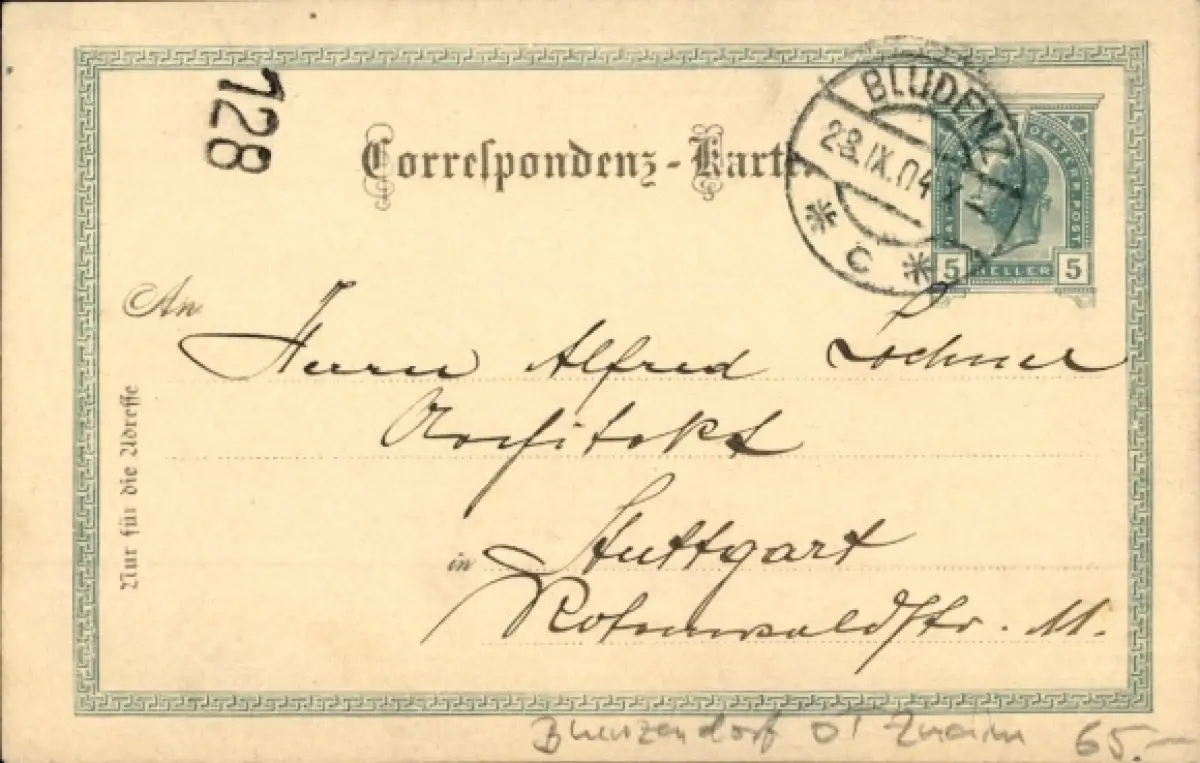 128
Correspondenz-Karte
BLUDENZ
28.IX.04
* C *
OESTERR.POST.
5 HELLER 5
An
Herrn Alfred Lochner
Architekt
in Stuttgart
Rotenwaldstr. 11.
Nur für die Adresse
65.-